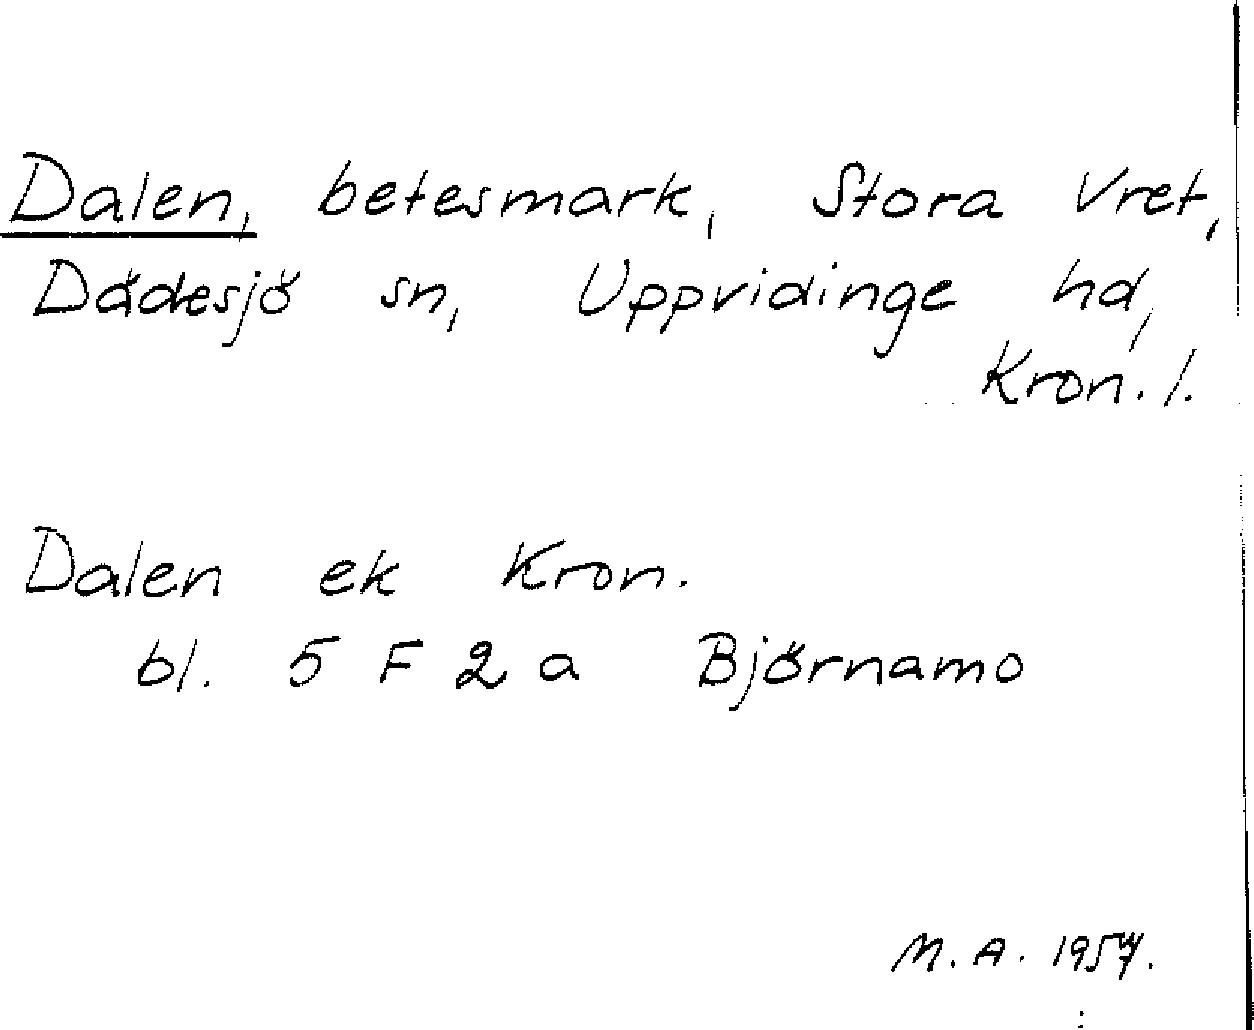 Dalen, betesmark, Stora Vret,
Dädesjö sn, Uppvidinge hd,
Kron. l.
Dalen ek Kron.
bl. 5 F 2 a Björnamo
M. A. 1957.